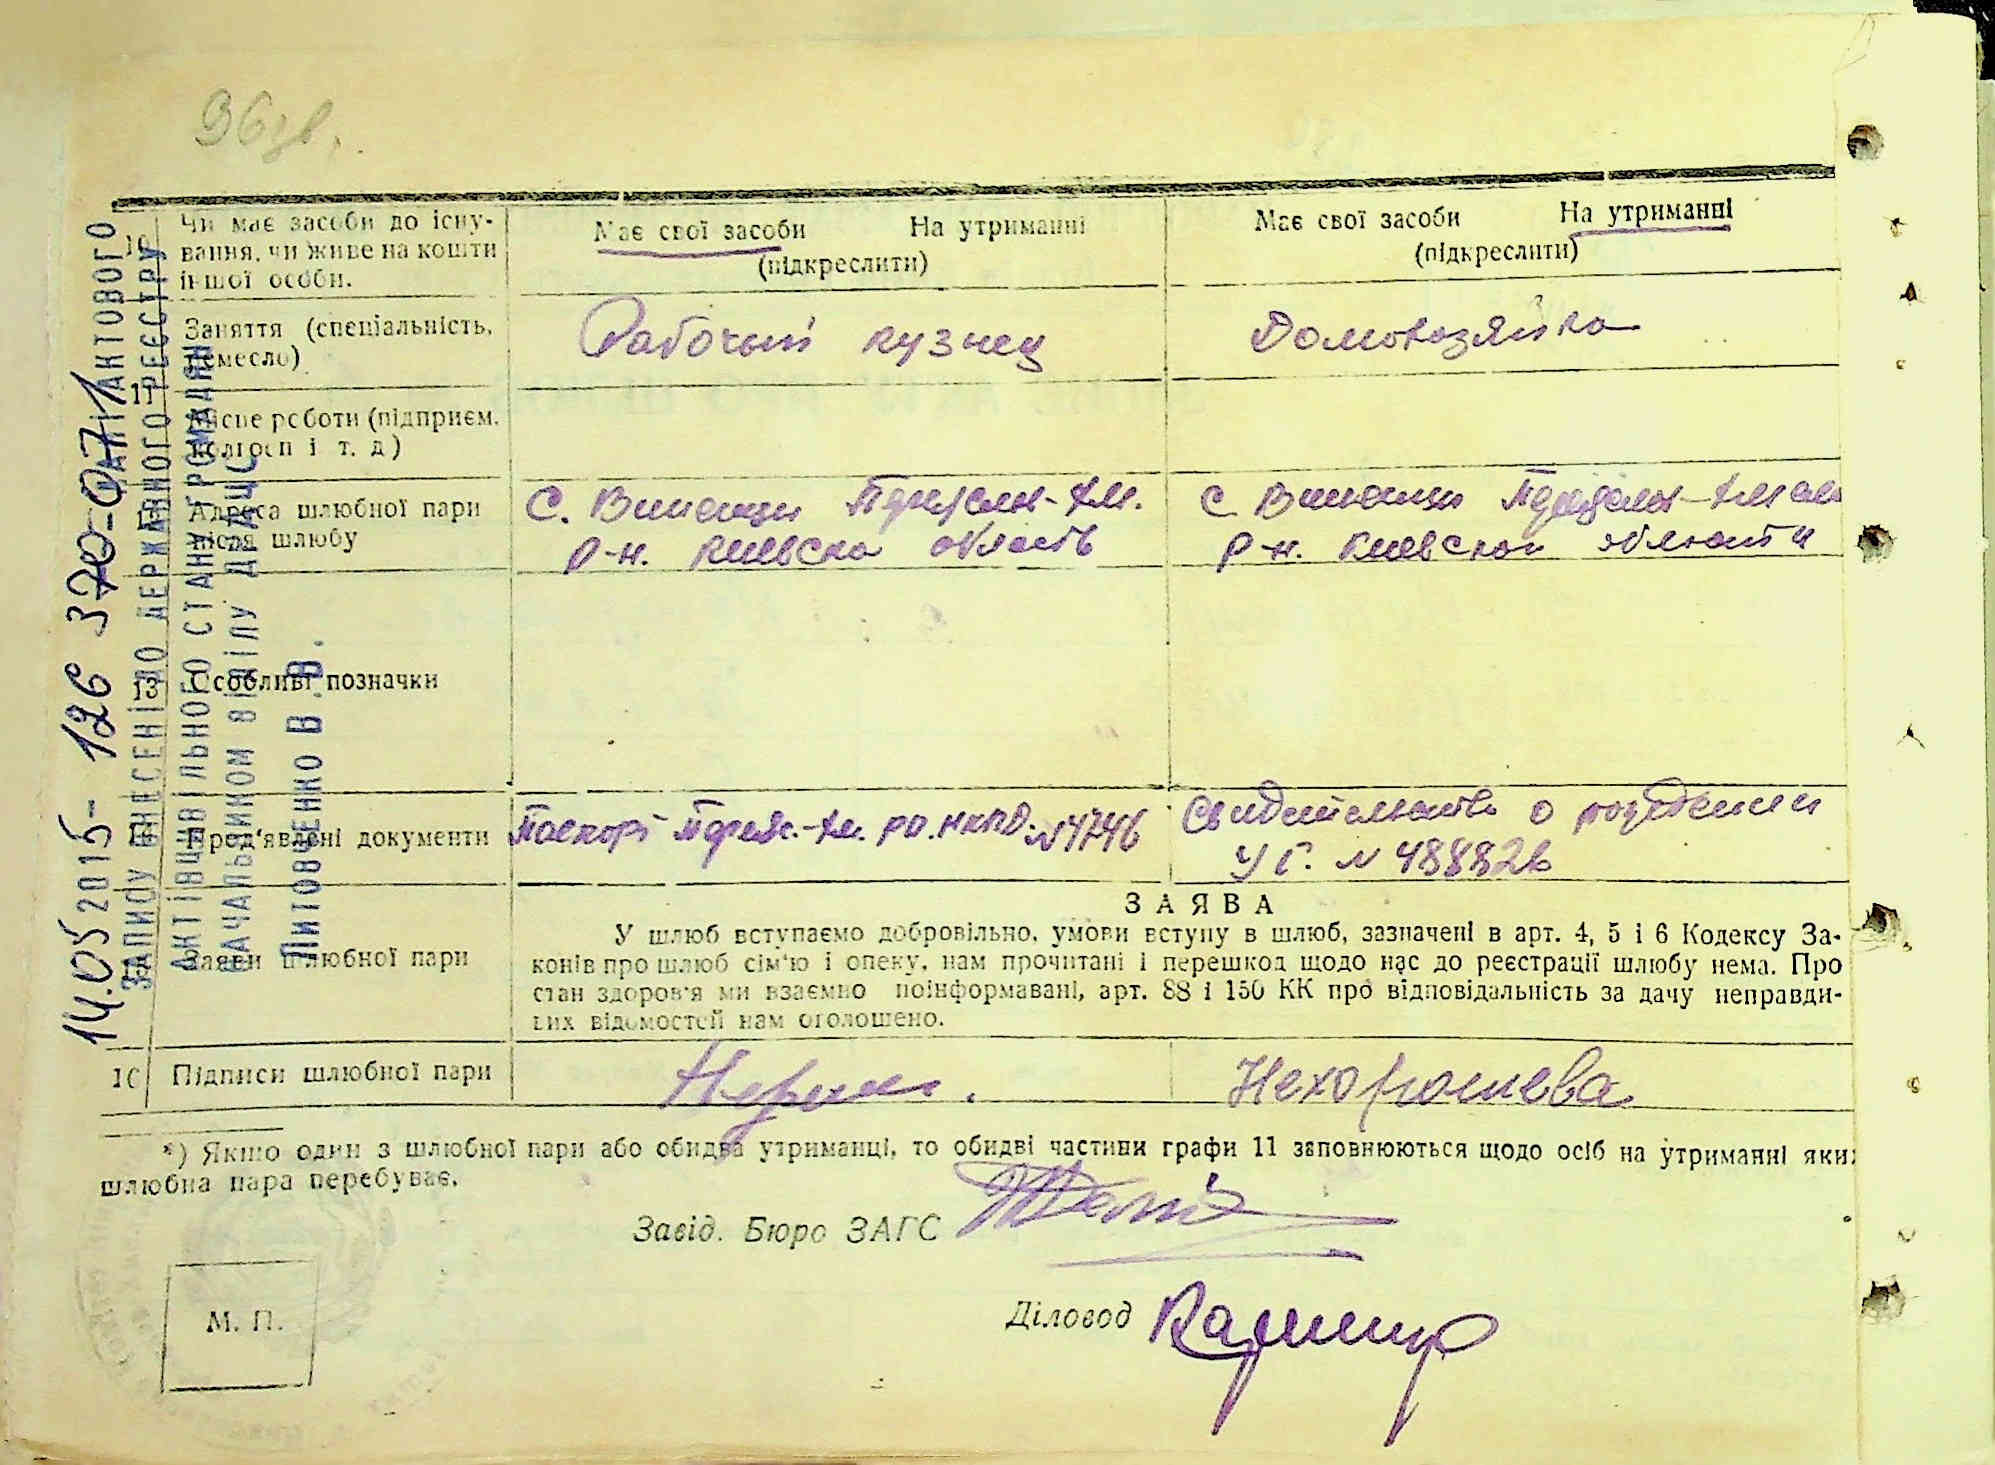 96 зв.
10
Чи має засоби до існу-
вання, чи живе на кошти
іншої особи.
Має свої засоби На утриманні
(підкреслити)
Має свої засоби На утриманні
(підкреслити)
11
Заняття (спеціальність,
ремесло)
Рабочий кузнец
Домохозяйка
Місце роботи (підприєм.
колгосп і т. д)
12
Адреса шлюбної пари
після шлюбу
с.
р-н. Киевска область
с
р-н. Киевской области
13
Особливі позначки
14
Пред'явлені документи
Паспорт № 4746
Свидетельство о рождении
УГ. № 488826
15
Заяви шлюбної пари
ЗАЯВА
У шлюб вступаємо добровільно, умови вступу в шлюб, зазначені в арт. 4, 5 і 6 Кодексу За-
конів про шлюб сім'ю і опеку, нам прочитані і перешкод щодо нас до реєстрації шлюбу нема. Про
стан здоров'я ми взаємно поінформавані, арт. 88 і 150 КК про відповідальність за дачу неправди-
вих відомостей нам оголошено.
16
Підписи шлюбної пари
Нехорошева
*) Якщо один з шлюбної пари або обидва утриманці, то обидві частини графи 11 заповнюються щодо осіб на утриманні яких
шлюбна пара перебуває.
Завід. Бюро ЗАГС
Діловод
М. П.
14.05 2015-126 370-071 АКТОВОГО
ЗАПИСУ ВНЕСЕНІ ДО ДЕРЖАВНОГО РЕЄСТРУ
АКТІВ ЦИВІЛЬНОГО СТАНУ ГРОМАДЯН
НАЧАЛЬНИКОМ ВІДДІЛУ ДРАЦС
Литовченко В.В.